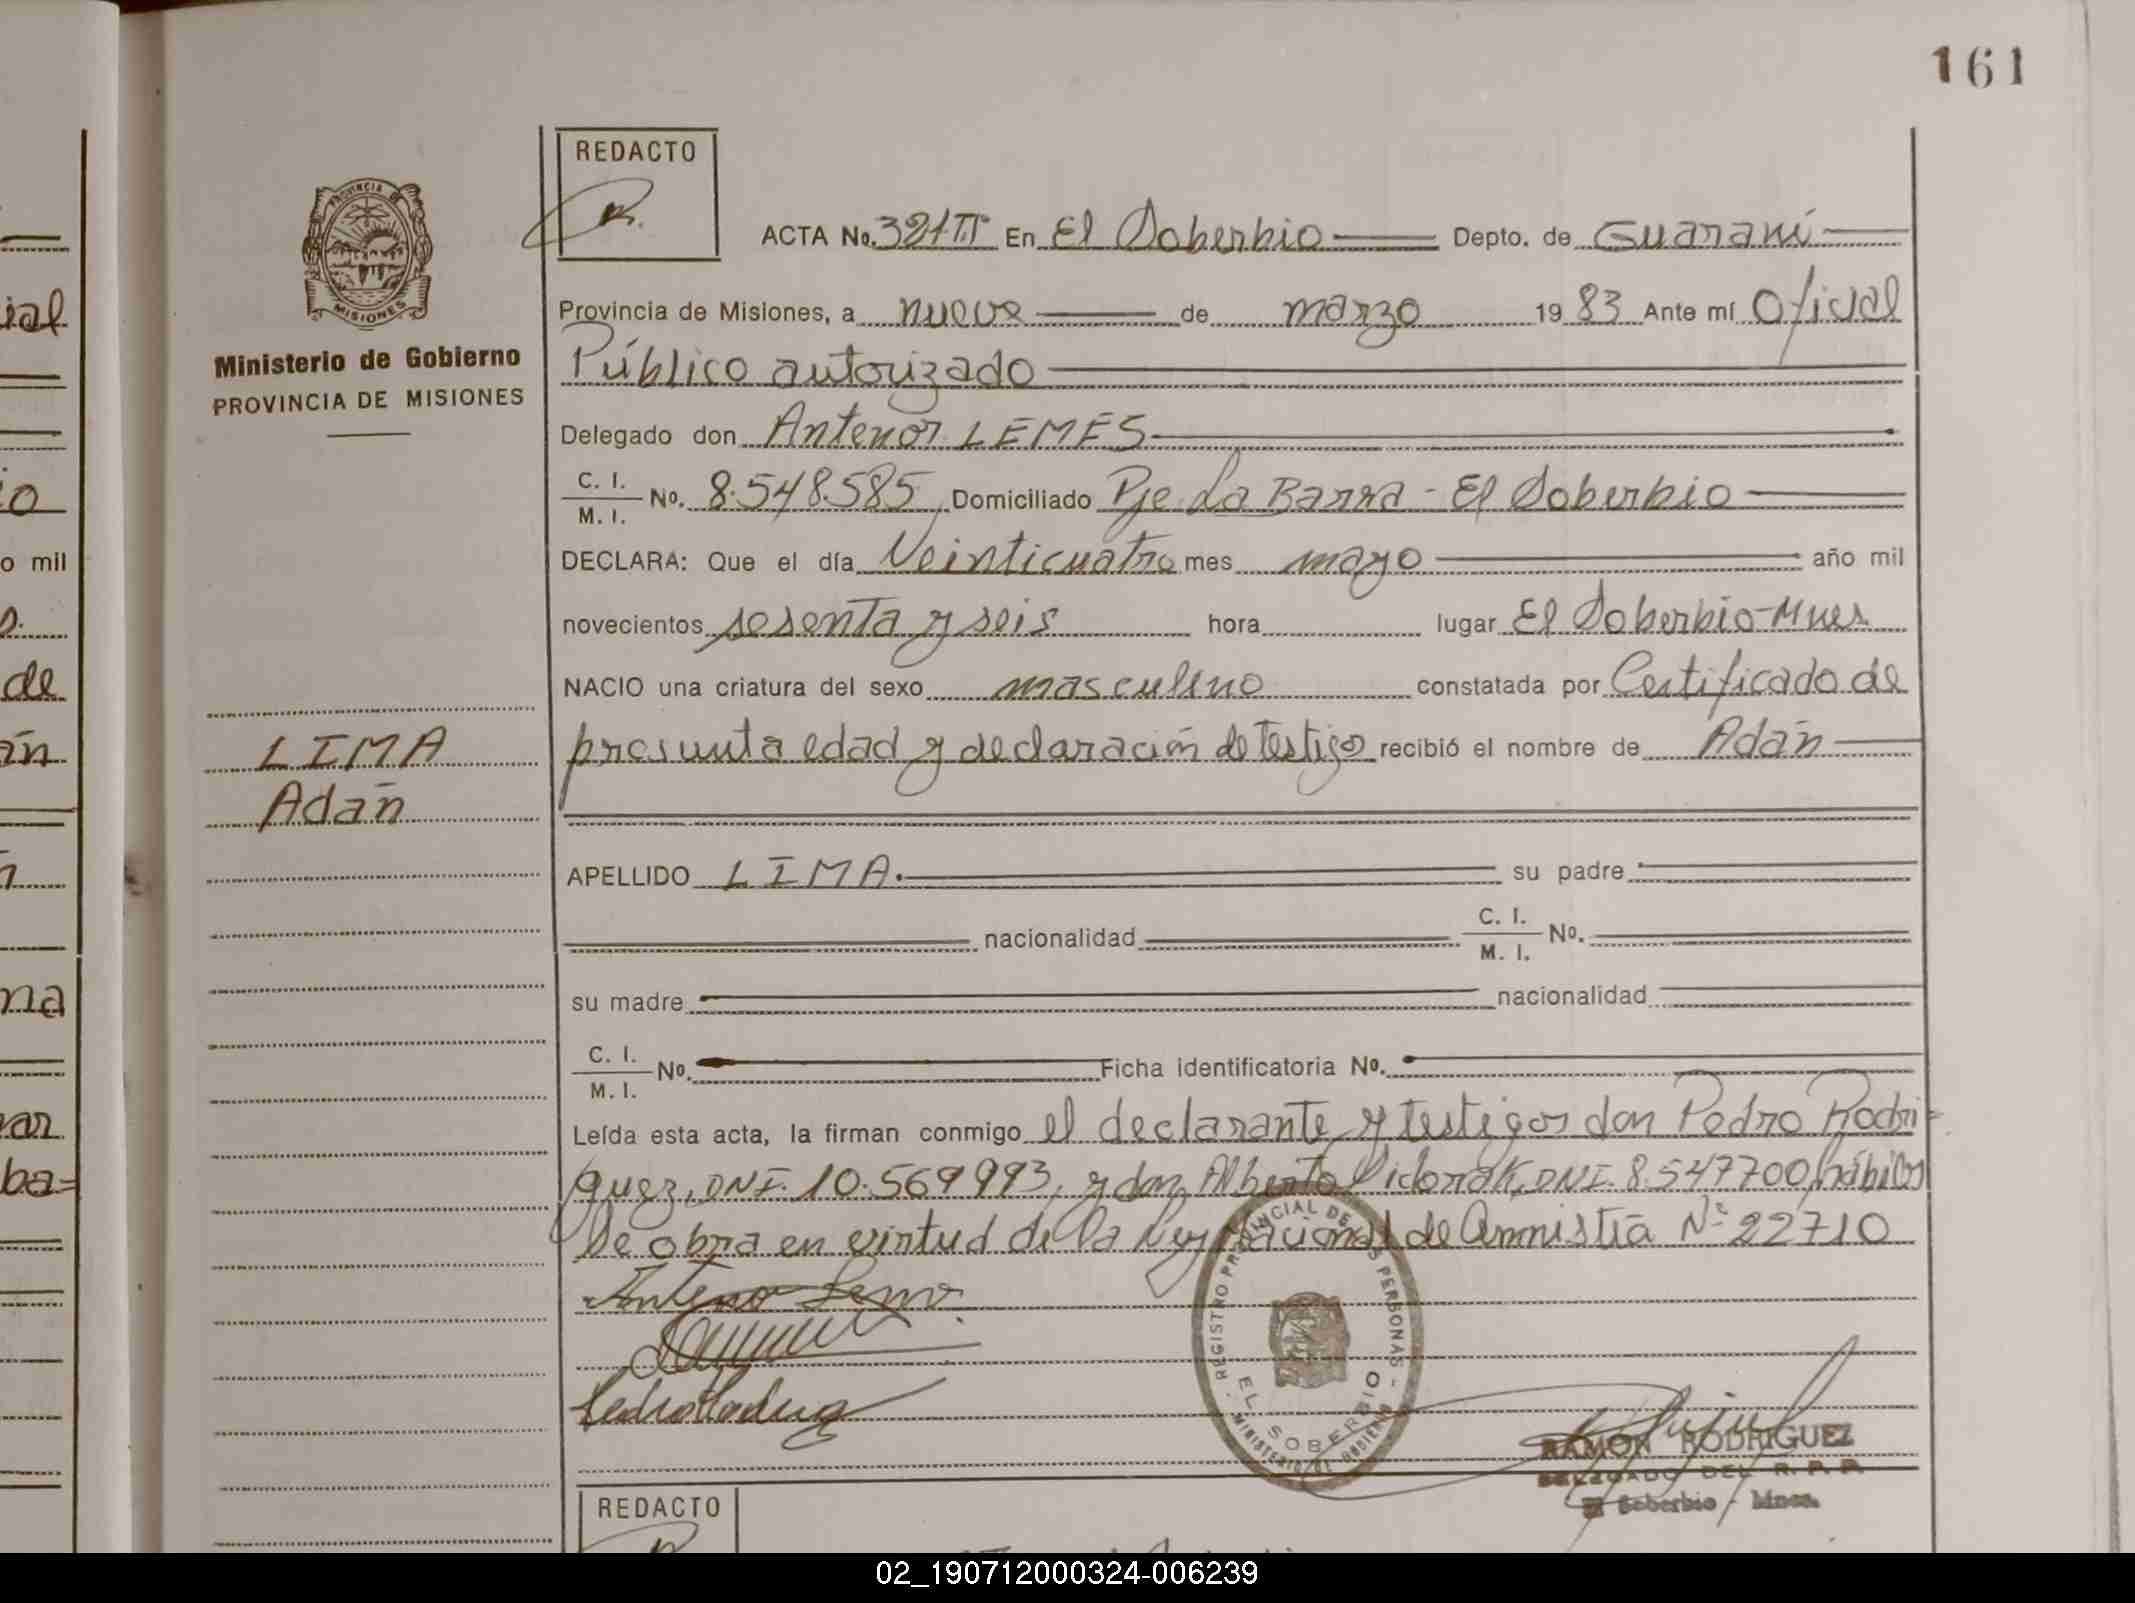 161
REDACTO
ACTA No. 321TIº En El Soberbio Depto. de Guaraní
PROVINCIA DE MISIONES
Provincia de Misiones, a nueve de marzo 1983 Ante mí Oficial
Ministerio de Gobierno
PROVINCIA DE MISIONES
Público autorizado
Delegado don Antenor LEMES
C. I. / M. I. No. 8.548.585, Domiciliado Pje La Barra - El Soberbio
DECLARA: Que el día Veinticuatro mes mayo año mil
novecientos sesenta y seis hora lugar El Soberbio-Mnes
NACIO una criatura del sexo masculino constatada por Certificado de
presunta edad y declaración de testigos recibió el nombre de Adán
LIMA
Adán
APELLIDO LIMA. su padre
nacionalidad C. I. / M. I. No.
su madre nacionalidad
C. I. / M. I. No. Ficha identificatoria No.
Leída esta acta, la firman conmigo el declarante y testigos don Pedro Rodri=
guez, DNI. 10.569993, y don Alberto DNI. 8.547700, hábiles
Se obra en virtud de la Ley Nacional de Amnistía Nº 22710
REGISTRO PROVINCIAL DE LAS PERSONAS - MINISTERIO DE GOBIERNO
EL SOBERBIO
RAMON RODRIGUEZ
DELEGADO DEL R. P. P.
El Soberbio - Mnes.
REDACTO
02_190712000324-006239